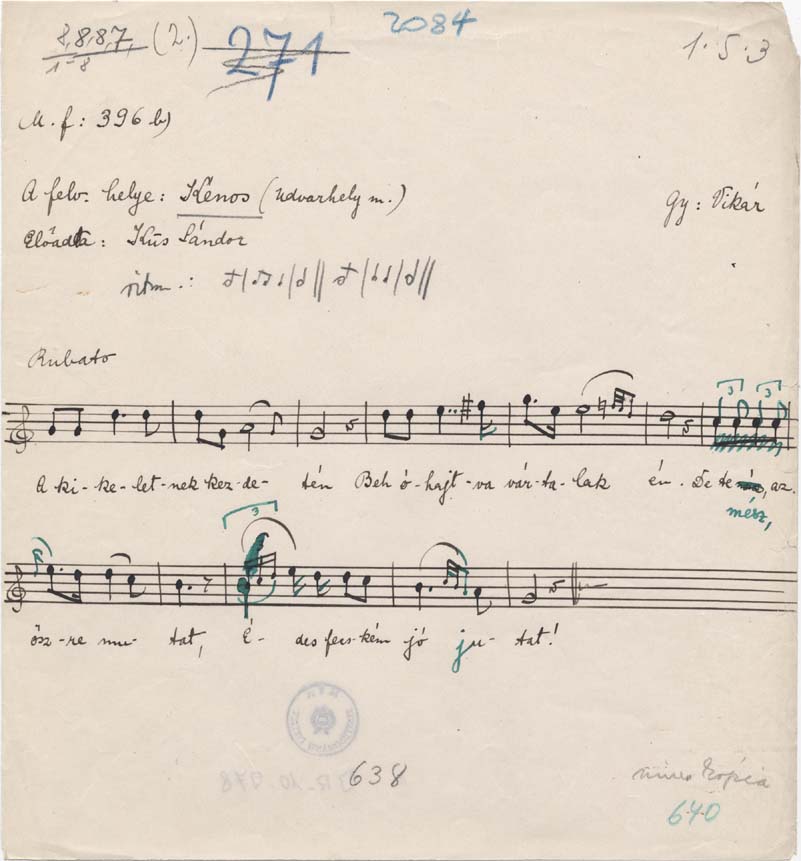 8,8,8,7, (2.) 271
2084
1·5·3
1-8
M. f: 396 b)
A felv. helye: Kénos (Udvarhely m.)
Gy: Vikár
Előadta: Kús Sándor
ritm.:
Rubato
3 3
A ki-ke-let-nek kez-de-tén Beh ó-hajt-va vár-ta-lak én. De te az
mész,
3
ősz-re mu-tat, É-des fecs-kém jó ju-tat!
638
nincs kópia
640